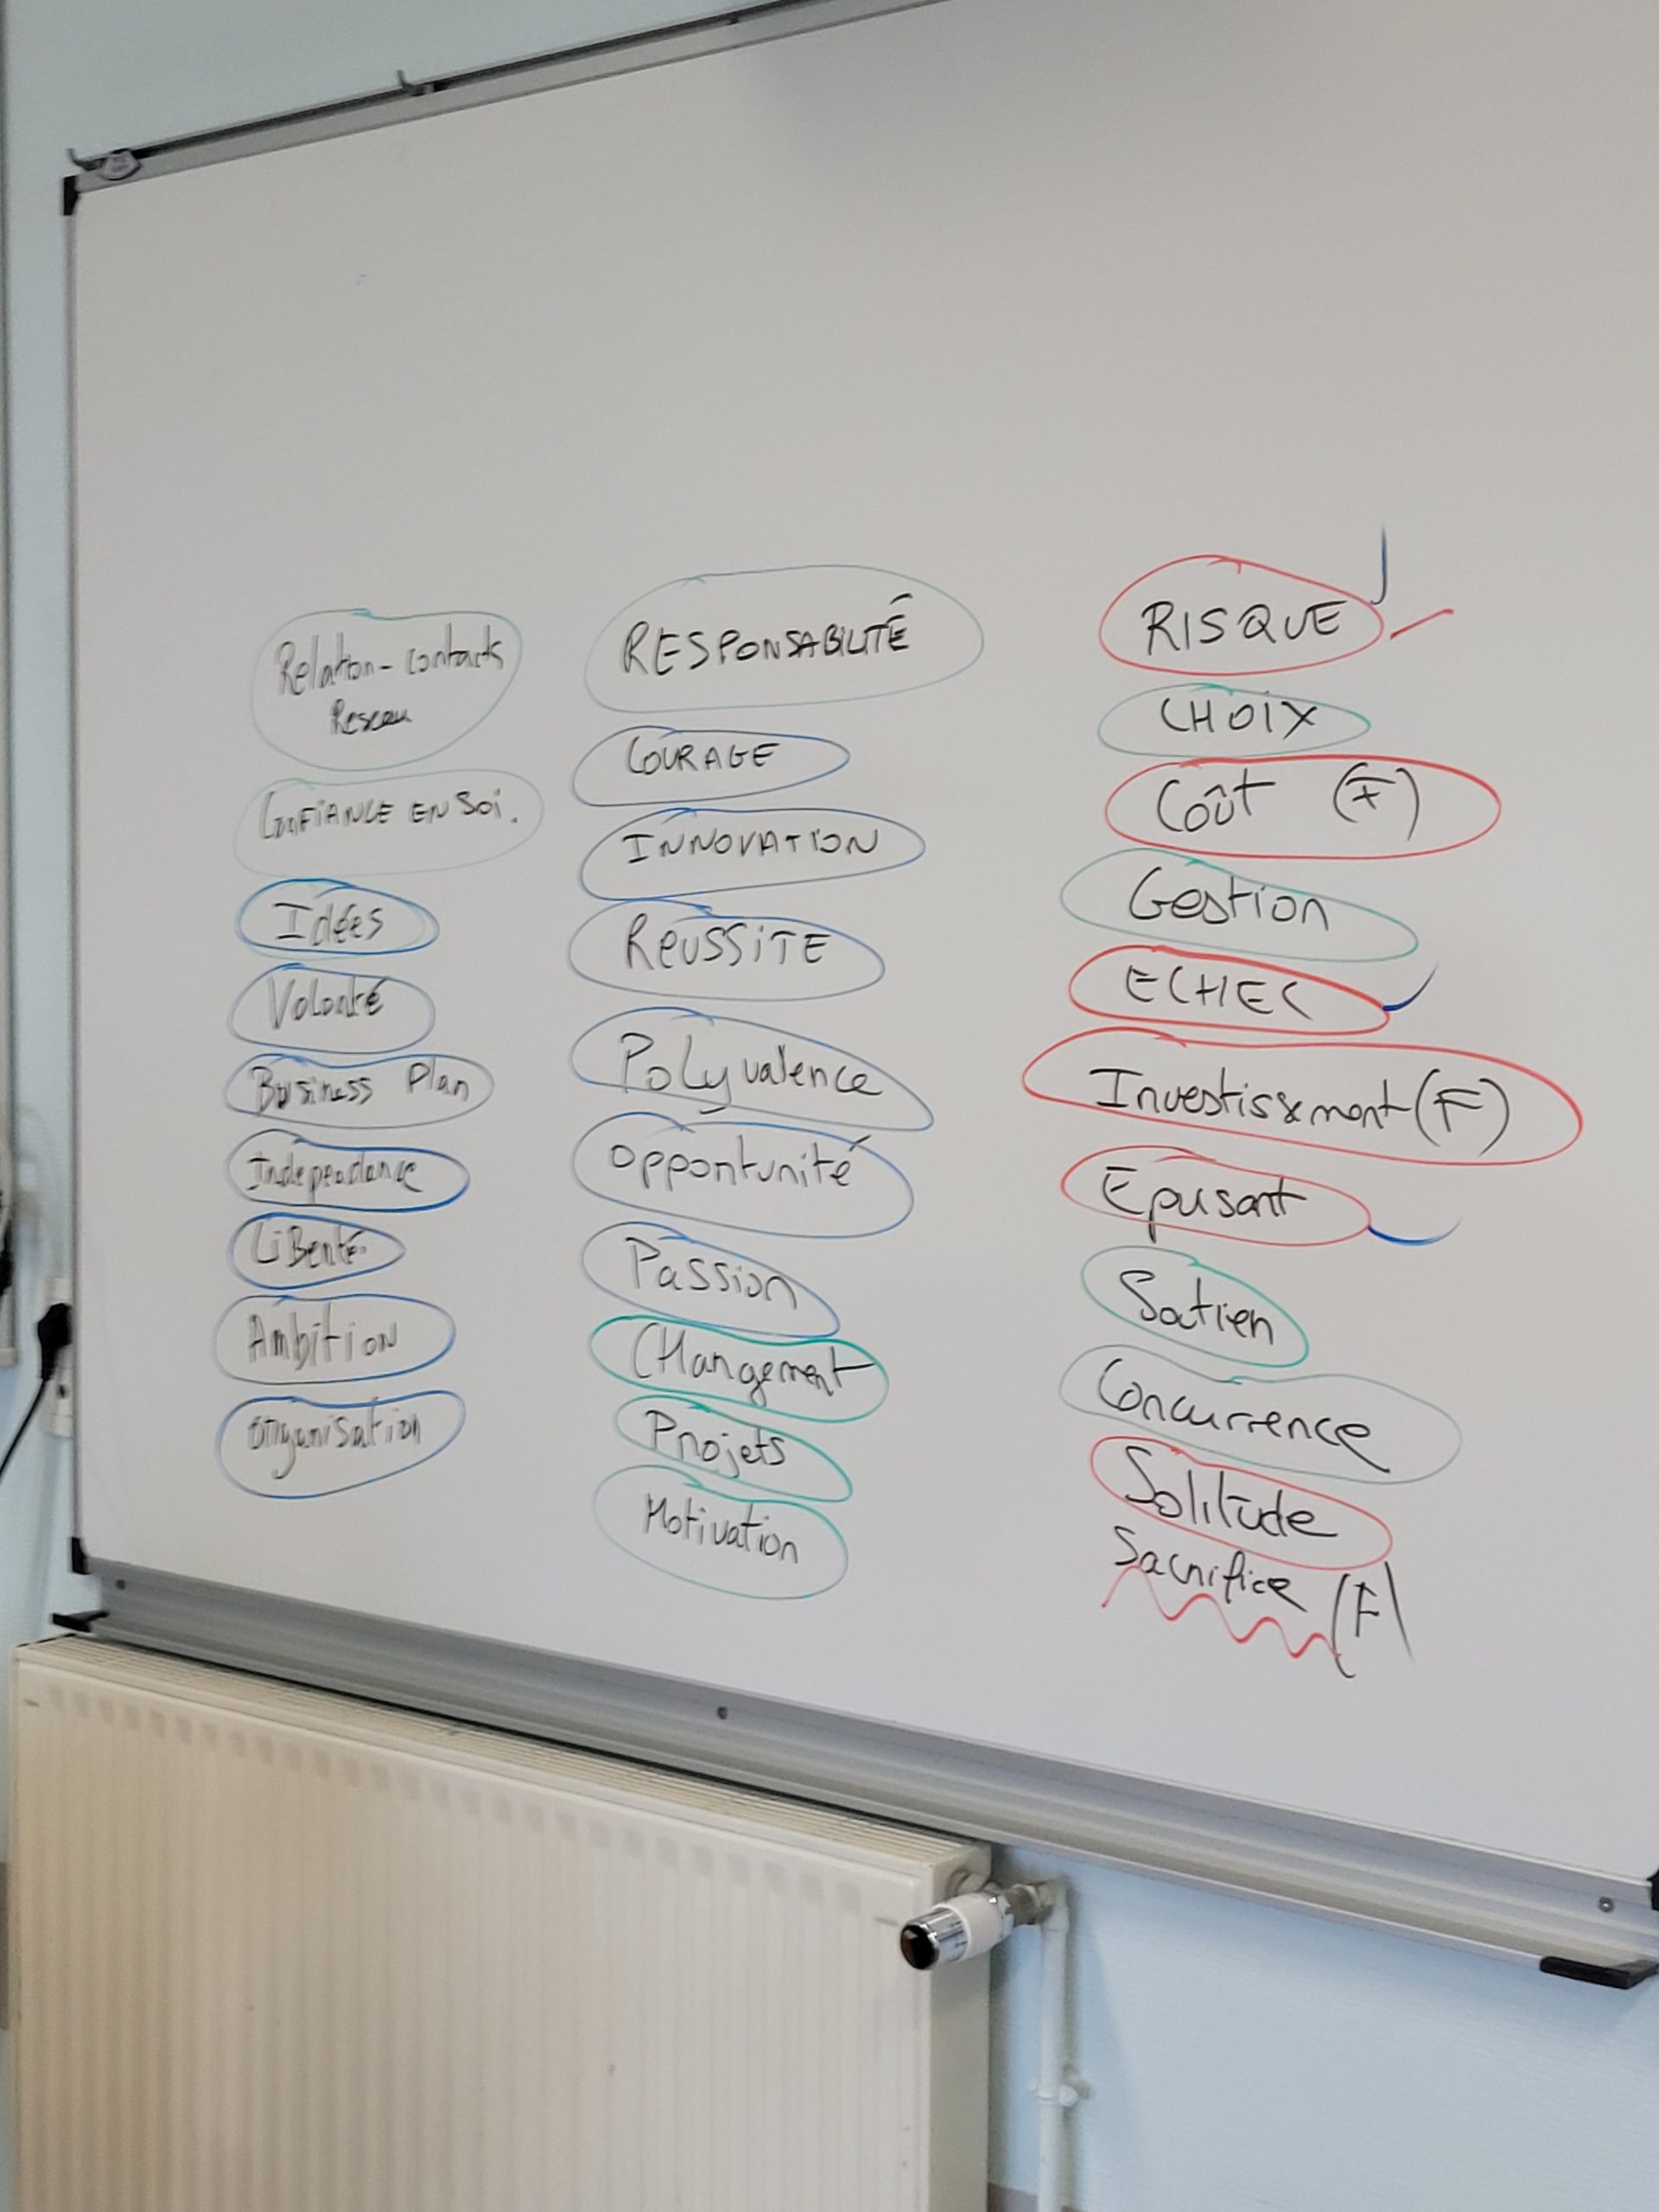 Relation - contacts
Reseau
CONFIANCE EN SOI.
Idées
Volonté
Business Plan
Independance
LiBerté
Ambition
Organisation
RESPONSABILITÉ
COURAGE
INNOVATION
REUSSITE
Polyvalence
Opportunité
Passion
CHangement
Projets
Motivation
RISQUE
CHOIX
Coût (F)
Gestion
ECHEC
Investissement (F)
Epuisant
Soutien
Concurrence
Solitude
Sacrifice (F)